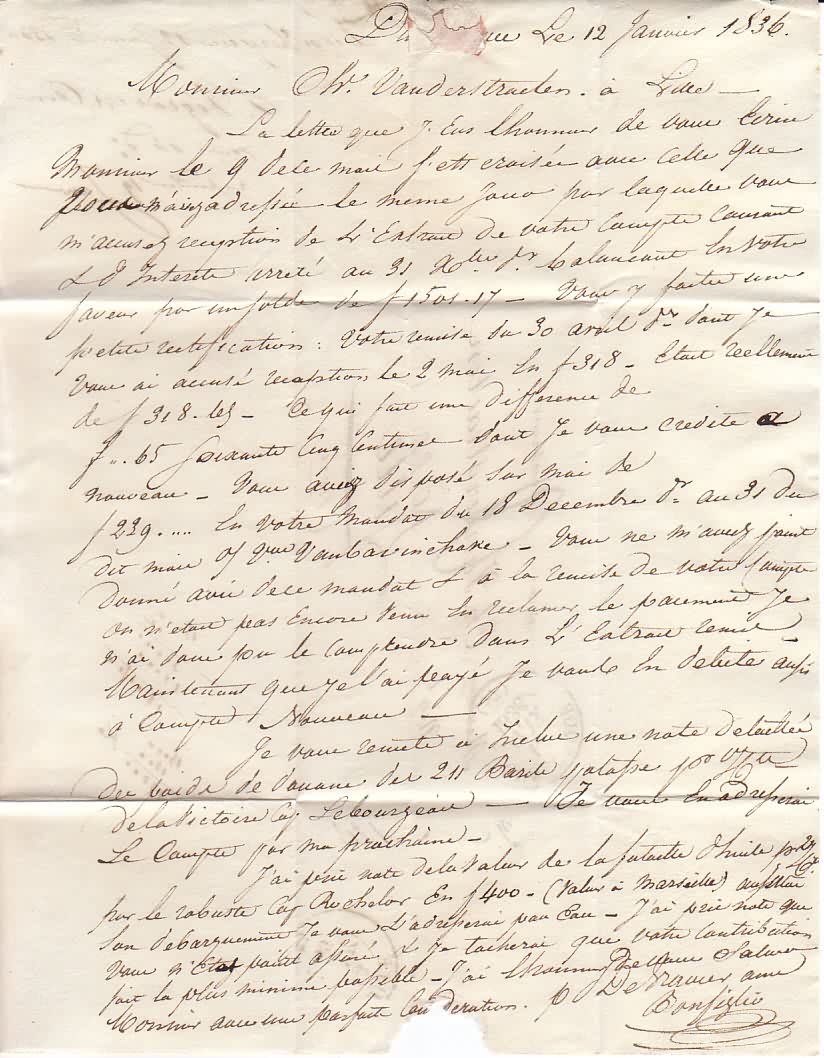 Du que Le 12 Janvier 1836.
Monsieur Ch. Vanderstraeten. à Lille —
La lettre que J'Eus lhonneur de vous Ecrire
Monsieur le 9 de ce mois s'est croisée avec celle que
vous m'avez adressée le meme Jour par laquelle vous
m'accusez reception de L'Extrait de votre Compte Courant
& D'Interets arreté au 31 Xbre dr balancant En votre
faveur par un solde de f 1501.17 — Vous y faites une
petite rectification : Votre remise du 30 avril dr dont Je
vous ai accusé reception le 2 mai En f 318 — Etait reellement
de f 318.65 — Ce qui fait une difference de
f ". 65 Soixante Cinq Centimes dont Je vous credite a
nouveau — Vous aviez disposé sur moi de
f 229 .... En votre Mandat du 18 Decembre dr au 31 du
dit mois o/ Vanbavinchove — Vous ne m'avez point
donné avis de ce mandat & à la remise de votre Compte
on n'etait pas Encore venu En reclamer le paiement Je
n'ai donc pu le Comprendre dans L'Extrait remis —
Maintenant que je l'ai payé Je vous En debite aussi
à Compte Nouveau —
Je vous remets à Inclus une note detaillée
des poids de douane des 211 Barils potasse pr v/Cpte
de la Victoire Cap Lebourgeois — Je vous En adresserai
Le Compte par ma prochaine —
J'ai pris note de la Valeur de la futaille d'huile
par le robuste Cap Rochelor En f 400 — (Valeur à Marseille) aussitôt
Son debarquement Je vous L'adresserai par Eau — J'ai pris note que
vous n'Etes point assuré & Je tacherai que votre Contribution
soit la plus minime possible — J'ai lhonneur de vous Saluer
Monsieur avec une parfaite Consideration. p. Devravier
Bonsiglio